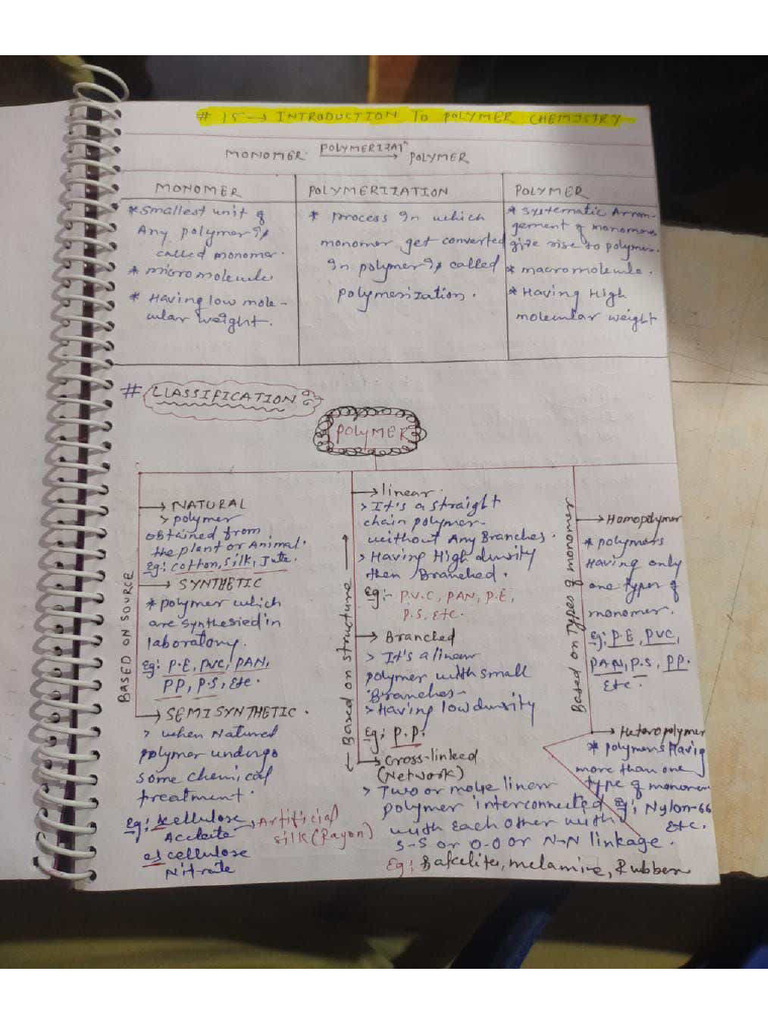 # 15 → INTRODUCTION To POLYMER CHEMISTRY
MONOMER POLYMERIZATn → POLYMER
MONOMER
* Smallest unit of
Any polymer is
called monomer.
* micromolecule
* Having low mole-
cular weight.
POLYMERIZATION
* process in which
monomer get converted
in polymer is called
polymerization.
POLYMER
* Systematic Arran-
gement of monomers
give rise to polymer.
* macromolecule.
* Having High
molecular weight
# CLASSIFICATION
POLYMER
BASED ON SOURCE
→ NATURAL
> polymer
obtained from
the plant or Animal.
Eg: Cotton, Silk, Jute.
→ SYNTHETIC
* polymer which
are synthesied in
laboratory.
Eg: P.E, PVC, PAN,
PP, P.S, Etc.
→ SEMISYNTHETIC.
> when Natured
polymer undergo
some chemical
treatment.
Eg: cellulose
Acetate → Artificial
silk (Rayon)
cellulose
Nitrate
← Based on structure →
→ linear.
> It's a straight
chain polymer
without Any Branches.
> Having High density
then Branched.
Eg:- P.V.C, PAN, P.E,
P.S, Etc.
→ Branched
> It's a linear
polymer with small
Branches-
> Having low density
Eg: P.P.
→ Cross-linked
(Network)
> Two or more linear
polymer interconnected
with Each other with
S-S or O-O or N-N linkage.
Eg: Bakelite, melamine, Rubber
Based on Types of monomer
→ Homopolymer
* polymers
Having only
one types of
monomer.
Eg: P.E, PVC,
PAN, P.S, PP.
Etc.
→ Heteropolymer
* polymers Having
more than one
type of monomer
Eg: Nylon-66
Etc.